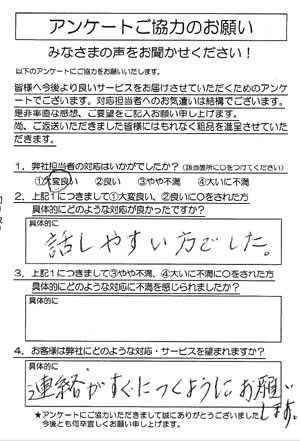 アンケートご協力のお願い
みなさまの声をお聞かせください！
以下のアンケートにご協力をお願いいたします。
皆様へ今後より良いサービスをお届けさせていただくためのアンケ
ートでございます。対応担当者へのお気遣いは結構でございます。
是非率直な感想、ご要望をご記入お願い申し上げます。
尚、ご返送いただきました皆様にはもれなく粗品を進呈させていた
だきます。
1．弊社担当者の対応はいかがでしたか？（該当箇所に○をつけてください）
①大変良い　②良い　③やや不満　④大いに不満
2．上記1につきまして①大変良い、②良いに○をされた方
具体的にどのような対応が良かったですか？
具体的に
話しやすい方でした。
3．上記1につきまして③やや不満、④大いに不満に○をされた方
具体的にどのような対応に不満を感じられましたか？
具体的に
4．お客様は弊社にどのような対応・サービスを望まれますか？
具体的に
連絡がすぐにつくようにお願い
します。
★アンケートにご協力いただきまして誠にありがとうございました
今後とも何卒宜しくお願い申し上げます。